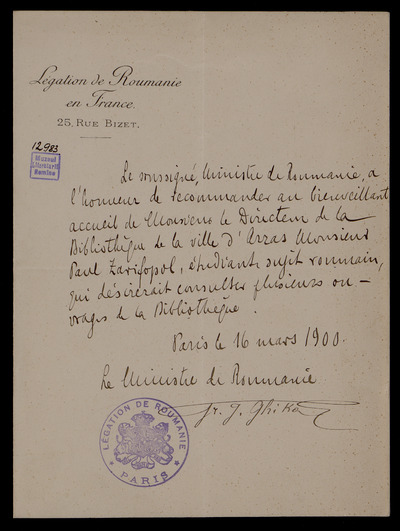 Légation de Roumanie
en France.
25, RUE BIZET.
12983
Muzeul
Literaturii
Romîne
Le soussigné, Ministre de Roumanie, a
l'honneur de recommander au bienveillant
accueil de Monsieur le Directeur de la
Bibliothèque de la ville d'Arras Monsieur
Paul Zarifopol, étudiant, sujet roumain,
qui désirerait consulter plusieurs ou-
vrages de la Bibliothèque.
Paris le 16 mars 1900.
Le Ministre de Roumanie
Gr. J. Ghika
LÉGATION DE ROUMANIE
PARIS